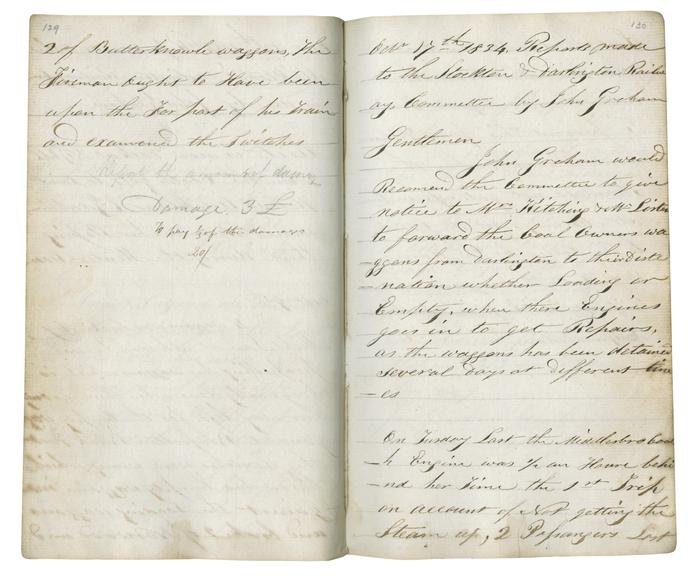 129
2 of Butterknowle waggons, The
Fireman ought to Have been
upon the For part of his Train
and examened the Switches
Report the amount of damage
Damage. 3 £
to pay ⅓ of the damages
20/
130
Octr 17th 1834. Reports made
to the Stockton & Darlington Railw
ay Committee by John Graham
Gentlemen
John Graham would
Recomend the Committee to give
notice to Mr. Kitching & Mr Lister
to forward the Coal Owners wa
-ggons from Darlington to their Deste
-nation whether Loading or
Empty, when there Engines
goes in to get Repairs,
as the waggons has been detained
several Days at different tim
-es
On Tusday Last the Middlesbro Coac
-h Engine was ½ an Houre behi
-nd her Time the 1st Trip
on account of Not getting the
Steam up, 2 Passangers Lost